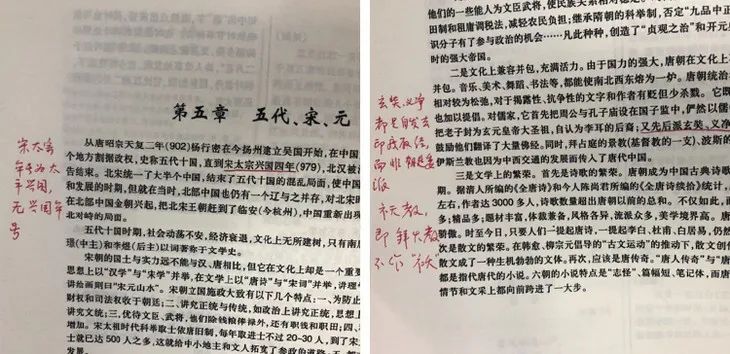 第五章　五代、宋、元
从唐昭宗天复二年(902)杨行密在今扬州建立吴国开始,在中国
个地方割据政权,史称五代十国,直到宋太宗兴国四年(979),北汉被
告结束。北宋统一了大半个中国,结束了五代十国的混乱局面,使中国
和发展的时期,但就在当时,北部中国也仍有一个辽与之并存,对北宋
在北部中国金朝兴起,把北宋王朝赶到了临安(今杭州),中国重新出现
北对峙的局面。
五代十国时期,社会动荡不安,经济衰退,文化上无所建树,只有南唐
璟(中主)和李煜(后主)以词著称于文学史。
宋朝的国土与实力远不能与汉、唐相比,但它在文化上却是一个重要
思想上以“汉学”与“宋学”并举,在文学上以“唐诗”与“宋词”并举,讲理学
讲绘画则曰“宋元山水”。宋朝立国施政大致有以下几个特点:一、为防止
财权和司法权收于朝廷;二、讲究正统与传统,如政治上讲究正统,思想上
讲究文统;三、优待文臣、武将,他们除钱粮俸禄外,还有职钱和职田;四、
增加。宋太祖时代科举取士依唐旧制,每年取进士不过20~30人,到了宋太
士就已达500人之多,这就给中小地主和文人拓宽了参政的道路;五、
发展。
宋太宗
年号为太
平兴国,
无兴国年
号
们的一些能人为文臣武将,使民族关系相对稳定。
田制和租庸调税法,减轻农民负担;继承隋朝的科举制,否定“九品中正
识分子有了参与政治的机会……凡此种种,创造了“贞观之治”和开元
时的强大帝国。
二是文化上兼容并包,充满活力。由于国力的强大,唐朝在文化上
并包。音乐、美术、舞蹈、书法等,都能使南北西东熔为一炉。唐朝统治
相对较为松弛,对于揭露性、抗争性的文字和作者有贬但少杀戮。它既
也加以提倡。对儒家,它首先把周公与孔子庙设在国子监中,俨然以儒
把老子封为玄元皇帝大圣祖,自认为李耳的后裔;又先后派玄奘、义净
鼓励他们翻译了大量佛经。同时,拜占庭的景教(基督教的一支)、波斯的
伊斯兰教也因为中西交通的发展而传入了唐代中国。
三是文学上的繁荣。首先是诗歌的繁荣。唐朝成为中国古典诗歌
期。据清人所编的《全唐诗》和今人陈尚君所编的《全唐诗续拾》统计,
左右,作者达3000多人,诗歌数量超出唐朝以前的总和。不仅如此,而
多;精品多;题材丰富,体裁兼备,风格各异,流派众多,美学境界高。唐
骄傲。时至今日,只要人们一提起唐诗,一提起李白、杜甫、白居易,仍然
次是散文的繁荣。在韩愈、柳宗元倡导的“古文运动”的推动下,散文创作
散文成了一种生机勃勃的文体。再次,应该是唐传奇。“唐人传奇”与“唐
都是指代唐代的小说。六朝的小说特点是“志怪”、篇幅短、笔记体,而唐
情节和文采上都向前跨进了一大步。
玄奘、义净
都是自发去
印取经,
而非朝廷委
派
祆教,
即拜火教
不作祆